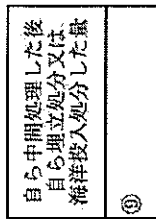 自ら中間処理した後
自ら埋立処分又は、
海洋投入処分した量
⑨